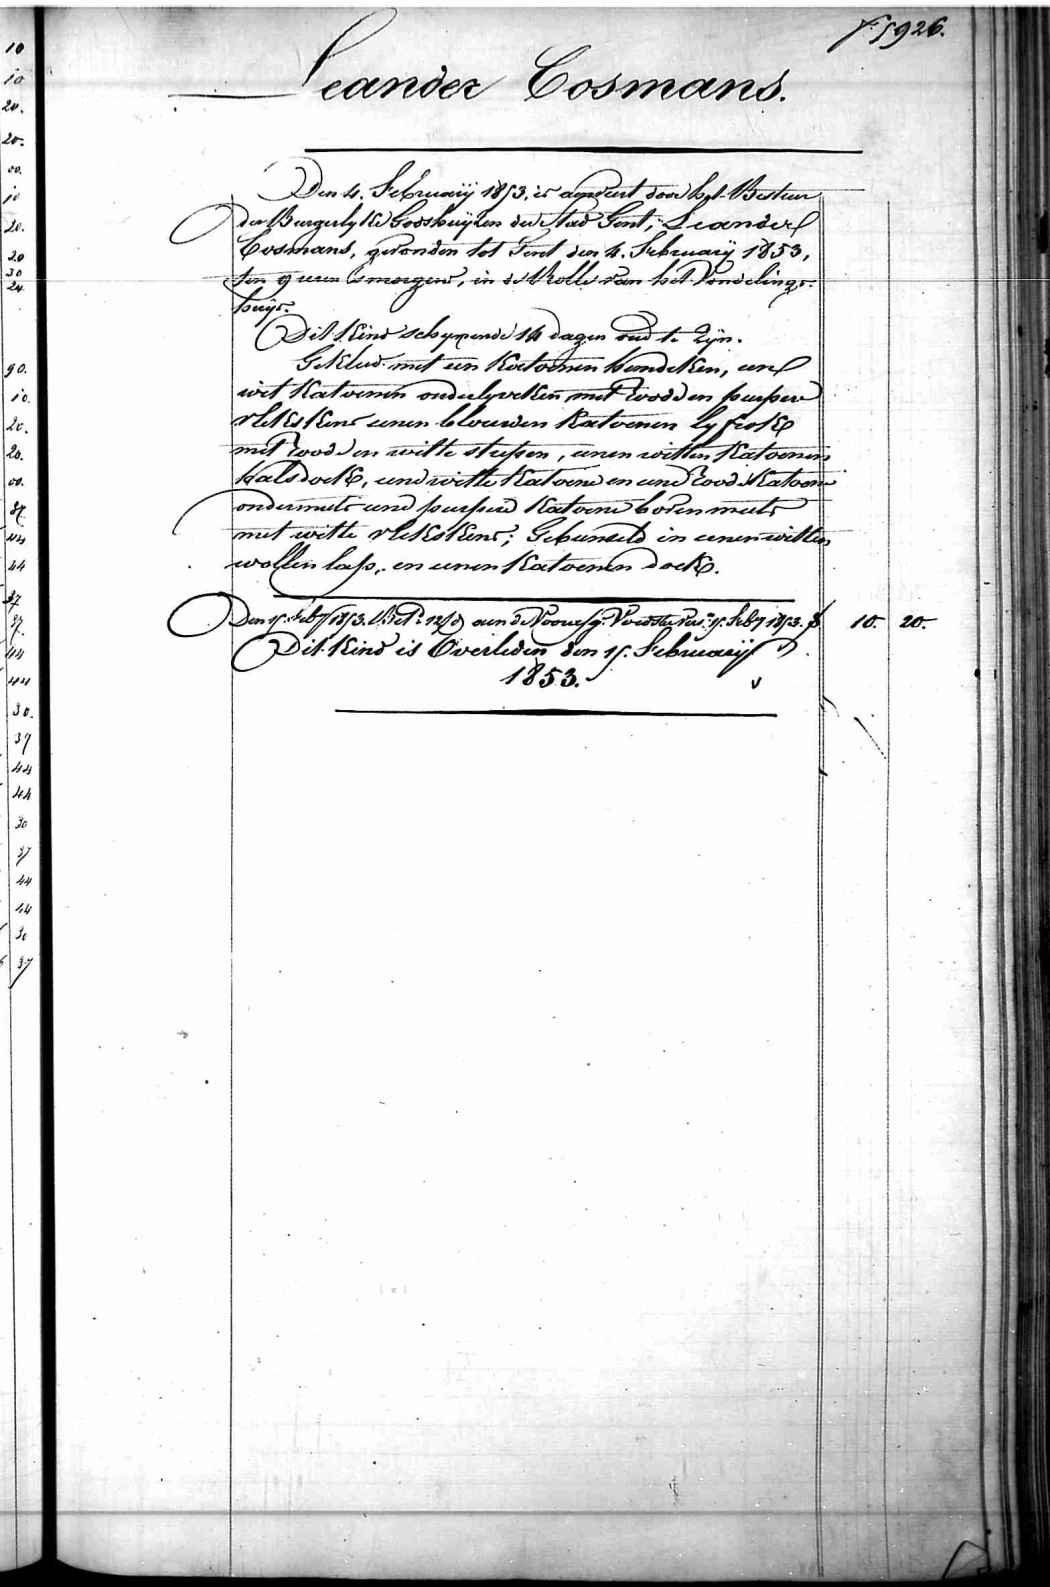 fº 5926.
Leander Cosmans.
Den 4. February 1853. is aenveirt door het Bestuer
der Burgerlyke Godshuyzen der Stad Gent; Leander
Cosmans, gevonden tot Gent den 4. February 1853,
ten 9 uren Smorgens, in de Rolle van het Vondelings-
huys.
Dit Kind schynende 14 dagen oud te Zyn.
Gekleed met een Katoenen hemdeken, een
wit Katoenen onderlyveken met rood en purper
vlekskens eenen blauwen Katoenen lyfrok
met rood en witte strepen, eenen witten Katoenen
halsdoek, eene witte Katoene en eene roode Katoene
ondermuts eene purpere Katoene bovenmuts
met witte vlekskens; Gebunseld in eenen witten
wollen lap, en eenen Katoenen doek.
Den 15. feby 1853. aen de 15. feby 1853. 10. 20.
Dit Kind is Overleden den 15. February
1853.
10
10
20.
20.
00.
10
20.
20
30
24.
90.
10.
20.
20.
00.
37
44
44
37
37.
44
44
30.
37
44
44
30
37
44
44
30
37